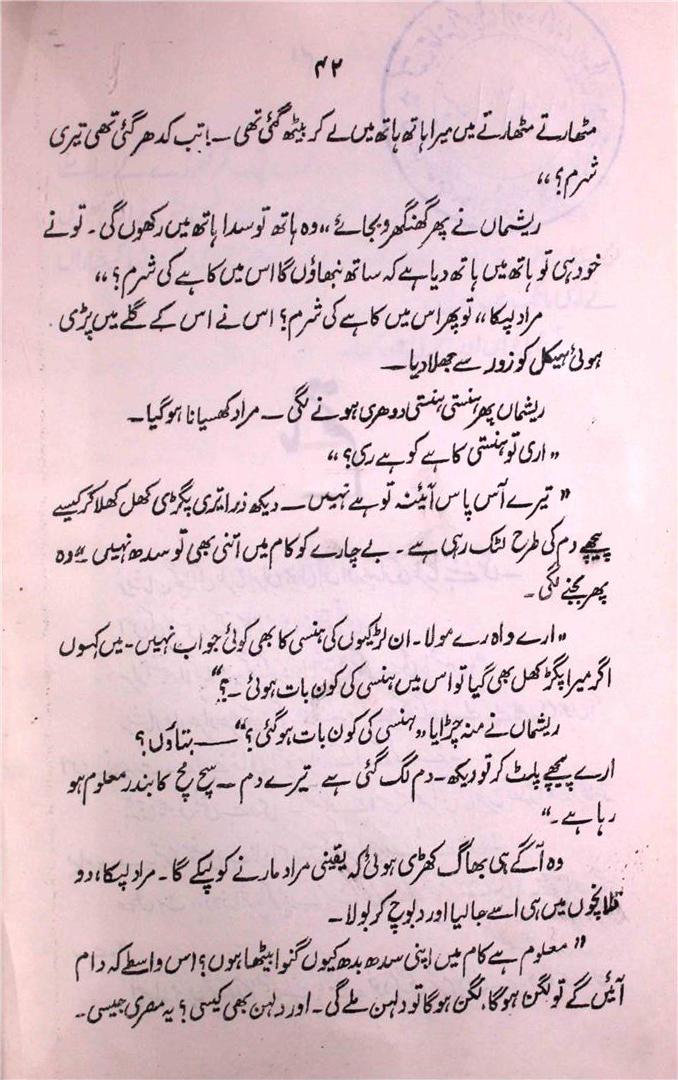 ۴۲
مٹھارتے مٹھارتے میں میرا ہاتھ ہاتھ میں لے کر بیٹھ گئی تھی ۔! تب کدھر گئی تھی تیری
شرم؟ ،،
ریشماں نے پھر گھنگھرو بجائے ،، وہ ہاتھ تو سدا ہاتھ میں رکھوں گی ۔ تو نے
خود ہی تو ہاتھ میں ہاتھ دیا ہے کہ ساتھ نبھاؤں گا اس میں کاہے کی شرم؟ ،،
مراد لپکا ،، تو پھر اس میں کاہے کی شرم؟ اس نے اس کے گلے میں پڑی
ہوئی ہیکل کو زور سے جھلا دیا ـــ
ریشماں پھر ہنستی ہنستی دوھری ہونے لگی ـــ مراد کھسیانا ہو گیا ـــ
،، اری تو ہنستی کاہے کو ہے ری؟ ،،
" تیرے آس پاس آئینہ تو ہے نہیں ـــ دیکھ ذرا تیری پگڑی کھل کھلا کر کیسے
پیچھے دم کی طرح لٹک رہی ہے ۔ بے چارے کو کام میں اتنی بھی تو سدھ نہیں " وہ
پھر بجنے لگی ۔
،، ارے واہ رے مولا ۔ ان لڑکیوں کی ہنسی کا بھی کوئی جواب نہیں ۔ میں کہوں
اگر میرا پگڑ کھل بھی گیا تو اس میں ہنسی کی کون بات ہوئی ـ؟"
ریشماں نے منہ چڑایا ،، ہنسی کی کون بات ہو گئی؟" ـــ بتاؤں؟
ارے پیچھے پلٹ کر تو دیکھ ۔ دم لگ گئی ہے تیرے دم ـــ سچ مچ کا بندر معلوم ہو
رہا ہے ۔"
وہ آگے ہی بھاگ کھڑی ہوئی کہ یقینی مراد مارنے کو لپکے گا ۔ مراد لپکا، دو
قلانچوں میں ہی اسے جا لیا اور دبوچ کر بولا ـ
" معلوم ہے کام میں اپنی سدھ بدھ کیوں گنوا بیٹھا ہوں؟ اس واسطے کہ دام
آئیں گے تو لگن ہو گا، لگن ہو گا تو دلہن ملے گی ۔ اور دلہن بھی کیسی؟ یہ مصری جیسی ۔